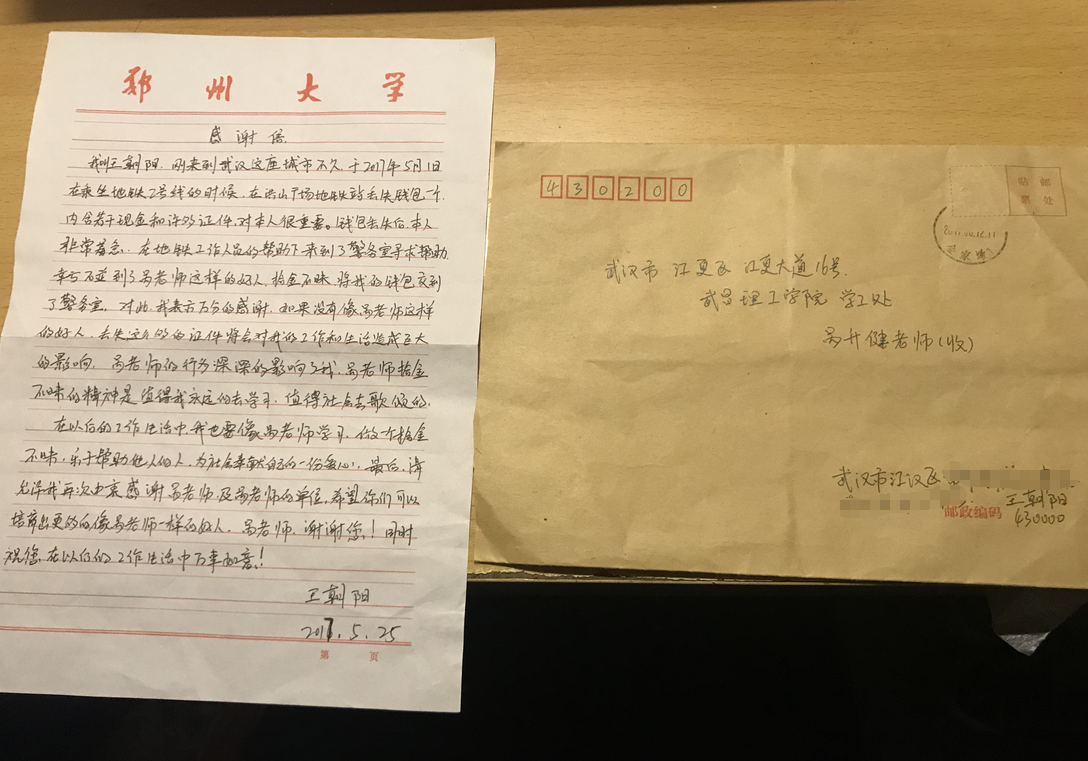 郑州大学
感谢信
我叫王朝阳,刚来到武汉这座城市不久,于2017年5月1日
在乘坐地铁2号线的时候,在洪山广场地铁站丢失钱包一个,
内含若干现金和许多证件,对本人很重要。钱包丢失后,本人
非常着急,在地铁工作人员的帮助下来到了警务室寻求帮助,
幸亏碰到了吴老师这样的好人,拾金不昧,将我的钱包交到
了警务室。对此,我表示万分的感谢,如果没有像吴老师这样
的好人,丢失这么多的证件将会对我的工作和生活造成巨大
的影响,吴老师的行为深深的影响了我,吴老师拾金
不昧的精神是值得我永远的去学习,值得社会去歌颂的。
在以后的工作生活中,我也要像吴老师学习,做个拾金
不昧,乐于帮助他人的人,为社会奉献自己的一份爱心,最后,请
允许我再次由衷感谢吴老师及吴老师的单位,希望你们可以
培育出更多的像吴老师一样的好人,吴老师,谢谢您!同时
祝您在以后的工作生活中万事如意!
王朝阳
2017.5.25
第 页
430200
邮票
贴处
武汉市江夏区江夏大道16号
武昌理工学院 学工处
吴升健老师(收)
武汉市江汉区
王朝阳
邮政编码 430000